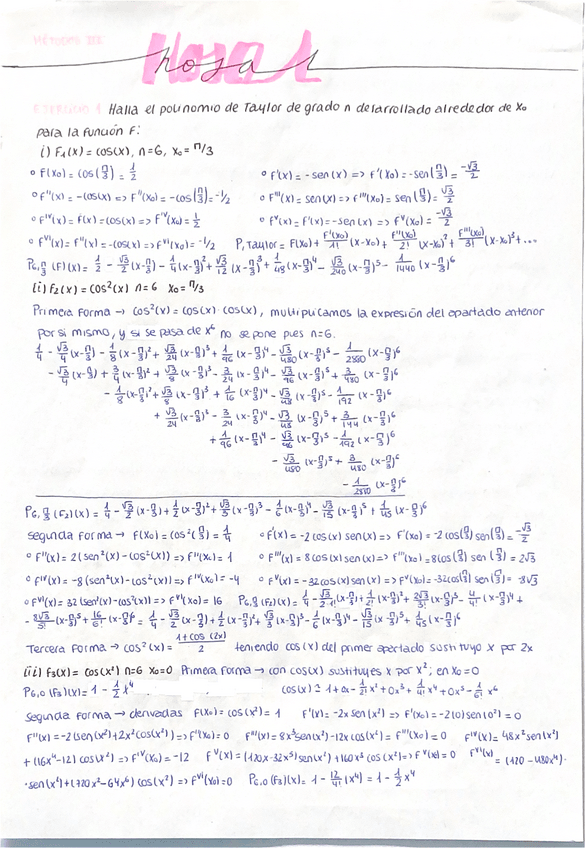 MÉTODOS III
Hoja 1
EJERCICIO 1 Halla el polinomio de Taylor de grado n desarrollado alrededor de x₀
para la función F:
(i) F₁(x) = cos(x), n=6, x₀ = π/3
○ F(x₀) = cos(π/3) = 1/2 ○ F'(x) = -sen(x) => F'(x₀) = -sen(π/3) = -√3/2
○ F''(x) = -cos(x) => F''(x₀) = -cos(π/3) = -1/2 ○ F'''(x) = sen(x) => F'''(x₀) = sen(π/3) = √3/2
○ F^IV(x) = F(x) = cos(x) => F^IV(x₀) = 1/2 ○ F^V(x) = F'(x) = -sen(x) => F^V(x₀) = -√3/2
○ F^VI(x) = F''(x) = -cos(x) => F^VI(x₀) = -1/2 P, Taylor = F(x₀) + F'(x₀)/1! (x-x₀) + F''(x₀)/2! (x-x₀)² + F'''(x₀)/3! (x-x₀)³ + ...
P₆,π/3 (F)(x) = 1/2 - √3/2 (x-π/3) - 1/4 (x-π/3)² + √3/12 (x-π/3)³ + 1/48 (x-π/3)⁴ - √3/240 (x-π/3)⁵ - 1/1440 (x-π/3)⁶
(ii) F₂(x) = cos²(x) n=6 x₀ = π/3
Primera forma → cos²(x) = cos(x)·cos(x), multiplicamos la expresión del apartado anterior
por si mismo, y si se pasa de x⁶ no se pone pues n=6.
1/4 - √3/4 (x-π/3) - 1/8 (x-π/3)² + √3/24 (x-π/3)³ + 1/96 (x-π/3)⁴ - √3/480 (x-π/3)⁵ - 1/2880 (x-π/3)⁶
- √3/4 (x-π/3) + 3/4 (x-π/3)² + √3/8 (x-π/3)³ - 3/24 (x-π/3)⁴ - √3/96 (x-π/3)⁵ + 3/480 (x-π/3)⁶
- 1/8 (x-π/3)² + √3/8 (x-π/3)³ + 1/16 (x-π/3)⁴ - √3/48 (x-π/3)⁵ - 1/192 (x-π/3)⁶
+ √3/24 (x-π/3)³ - 3/24 (x-π/3)⁴ - √3/48 (x-π/3)⁵ + 3/144 (x-π/3)⁶
+ 1/96 (x-π/3)⁴ - √3/96 (x-π/3)⁵ - 1/192 (x-π/3)⁶
- √3/480 (x-π/3)⁵ + 3/480 (x-π/3)⁶
- 1/2880 (x-π/3)⁶
P₆,π/3 (F₂)(x) = 1/4 - √3/2 (x-π/3) + 1/2 (x-π/3)² + √3/3 (x-π/3)³ - 1/6 (x-π/3)⁴ - √3/15 (x-π/3)⁵ + 1/45 (x-π/3)⁶
segunda forma → F(x₀) = cos²(π/3) = 1/4 ○ F'(x) = -2 cos(x) sen(x) => F'(x₀) = -2 cos(π/3) sen(π/3) = -√3/2
○ F''(x) = 2(sen²(x) - cos²(x)) => F''(x₀) = 1 ○ F'''(x) = 8 cos(x) sen(x) => F'''(x₀) = 8cos(π/3) sen(π/3) = 2√3
○ F^IV(x) = -8(sen²(x) - cos²(x)) => F^IV(x₀) = -4 ○ F^V(x) = -32 cos(x) sen(x) => F^V(x₀) = -32cos(π/3) sen(π/3) = -8√3
○ F^VI(x) = 32(sen²(x) - cos²(x)) => F^VI(x₀) = 16 P₆,π/3 (F₂)(x) = 1/4 - √3/2·1! (x-π/3) + 1/2! (x-π/3)² + 2√3/3! (x-π/3)³ - 4/4! (x-π/3)⁴ +
- 8√3/5! (x-π/3)⁵ + 16/6! (x-π/3)⁶ = 1/4 - √3/2 (x-π/3) + 1/2 (x-π/3)² + √3/3 (x-π/3)³ - 1/6 (x-π/3)⁴ - √3/15 (x-π/3)⁵ + 1/45 (x-π/3)⁶
Tercera forma → cos²(x) = 1+cos(2x)/2 teniendo cos(x) del primer apartado sustituyo x por 2x
(iii) F₃(x) = cos(x²) n=6 x₀=0 Primera forma → con cos(x) sustituyes x por x²; en x₀=0
P₆,₀ (F₃)(x) = 1 - 1/2 x⁴ cos(x) ≃ 1 + 0x - 1/2! x² + 0x³ + 1/4! x⁴ + 0x⁵ - 1/6! x⁶
Segunda forma → derivadas F(x₀) = cos(x²) = 1 F'(x) = -2x sen(x²) => F'(x₀) = -2(0)sen(0²) = 0
F''(x) = -2(sen(x²) + 2x² cos(x²)) => F''(x₀) = 0 F'''(x) = 8x³ sen(x²) - 12x cos(x²) => F'''(x₀) = 0 F^IV(x) = 48x² sen(x²)
+ (16x⁴-12) cos(x²) => F^IV(x₀) = -12 F^V(x) = (120x - 32x⁵) sen(x²) + 160x³ cos(x²) => F^V(x₀) = 0 F^VI(x) = (120 - 480x⁴)·
·sen(x²) + (720x² - 64x⁶) cos(x²) => F^VI(x₀) = 0 P₆,₀ (F₃)(x) = 1 - 12/4! (x⁴) = 1 - 1/2 x⁴